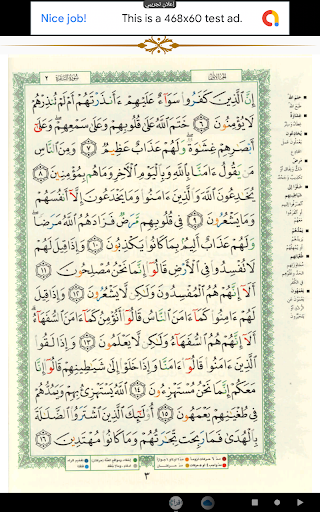 إعلان تجريبي
Nice job!
This is a 468x60 test ad.
٢
سُورَةُ البَقَرَةِ
إِنَّ ٱلَّذِينَ كَفَرُواْ سَوَآءٌ عَلَيْهِمْ ءَأَنذَرْتَهُمْ أَمْ لَمْ تُنذِرْهُمْ
لَا يُؤْمِنُونَ ٦ خَتَمَ ٱللَّهُ عَلَىٰ قُلُوبِهِمْ وَعَلَىٰ سَمْعِهِمْ ۖ وَعَلَىٰٓ
أَبْصَٰرِهِمْ غِشَٰوَةٌ ۖ وَلَهُمْ عَذَابٌ عَظِيمٌ ٧ وَمِنَ ٱلنَّاسِ
مَن يَقُولُ ءَامَنَّا بِٱللَّهِ وَبِٱلْيَوْمِ ٱلْءَاخِرِ وَمَا هُم بِمُؤْمِنِينَ ٨
يُخَٰدِعُونَ ٱللَّهَ وَٱلَّذِينَ ءَامَنُواْ وَمَا يَخْدَعُونَ إِلَّآ أَنفُسَهُمْ
وَمَا يَشْعُرُونَ ٩ فِى قُلُوبِهِم مَّرَضٌ فَزَادَهُمُ ٱللَّهُ مَرَضًا ۖ
وَلَهُمْ عَذَابٌ أَلِيمٌۢ بِمَا كَانُواْ يَكْذِبُونَ ١٠ وَإِذَا قِيلَ لَهُمْ
لَا تُفْسِدُواْ فِى ٱلْأَرْضِ قَالُوٓاْ إِنَّمَا نَحْنُ مُصْلِحُونَ ١١
أَلَآ إِنَّهُمْ هُمُ ٱلْمُفْسِدُونَ وَلَٰكِن لَّا يَشْعُرُونَ ١٢ وَإِذَا قِيلَ
لَهُمْ ءَامِنُواْ كَمَآ ءَامَنَ ٱلنَّاسُ قَالُوٓاْ أَنُؤْمِنُ كَمَآ ءَامَنَ ٱلسُّفَهَآءُ ۗ
أَلَآ إِنَّهُمْ هُمُ ٱلسُّفَهَآءُ وَلَٰكِن لَّا يَعْلَمُونَ ١٣ وَإِذَا لَقُواْ
ٱلَّذِينَ ءَامَنُواْ قَالُوٓاْ ءَامَنَّا وَإِذَا خَلَوْاْ إِلَىٰ شَيَٰطِينِهِمْ قَالُوٓاْ إِنَّا
مَعَكُمْ إِنَّمَا نَحْنُ مُسْتَهْزِءُونَ ١٤ ٱللَّهُ يَسْتَهْزِئُ بِهِمْ وَيَمُدُّهُمْ
فِى طُغْيَٰنِهِمْ يَعْمَهُونَ ١٥ أُوْلَٰٓئِكَ ٱلَّذِينَ ٱشْتَرَوُاْ ٱلضَّلَٰلَةَ
بِٱلْهُدَىٰ فَمَا رَبِحَت تِّجَٰرَتُهُمْ وَمَا كَانُواْ مُهْتَدِينَ ١٦
٣